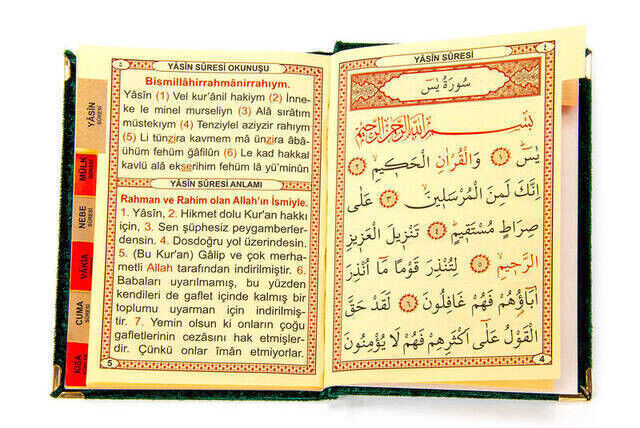 YÂSİN SÛRESİ
٤
سُورَةُ يٰسٓ
بِسْمِ اللّٰهِ الرَّحْمٰنِ الرَّحِيمِ
يٰسٓ ﴿١﴾ وَالْقُرْاٰنِ الْحَكِيمِ ﴿٢﴾
اِنَّكَ لَمِنَ الْمُرْسَلِينَ ﴿٣﴾ عَلٰى
صِرَاطٍ مُسْتَقِيمٍ ﴿٤﴾ تَنْزِيلَ الْعَزِيزِ
الرَّحِيمِ ﴿٥﴾ لِتُنْذِرَ قَوْمًا مَا اُنْذِرَ
اٰبَاؤُهُمْ فَهُمْ غَافِلُونَ ﴿٦﴾ لَقَدْ حَقَّ
الْقَوْلُ عَلٰى اَكْثَرِهِمْ فَهُمْ لَا يُؤْمِنُونَ
4
YÂSİN SÛRESİ OKUNUŞU
٥
Bismillâhirrahmânirrahıym.
Yâsîn (1) Vel kur'ânil hakiym (2) İnne-
ke le minel murseliyn (3) Alâ sırâtım
müstekıym (4) Tenziylel aziyzir rahıym
(5) Li tünzira kavmem mâ ünzira âbâ-
ühüm fehüm ğâfilûn (6) Le kad hakkal
kavlü alâ ekserihim fehüm lâ yü'minûn
YÂSİN SÛRESİ ANLAMI
Rahman ve Rahim olan Allah'ın İsmiyle.
1. Yâsîn, 2. Hikmet dolu Kur'an hakkı
için, 3. Sen şüphesiz peygamberler-
densin. 4. Dosdoğru yol üzerindesin.
5. (Bu Kur'an) Gâlip ve çok merha-
metli Allah tarafından indirilmiştir. 6.
Babaları uyarılmamış, bu yüzden
kendileri de gaflet içinde kalmış bir
toplumu uyarman için indirilmiş-
tir. 7. Yemin olsun ki onların çoğu
gafletlerinin cezasını hak etmişler-
dir. Çünkü onlar îman etmiyorlar.
5
YÂSİN
SÛRESİ
MÜLK
SÛRESİ
NEBE
SÛRESİ
VÂKIA
CUMA
SÛRESİ
KISA